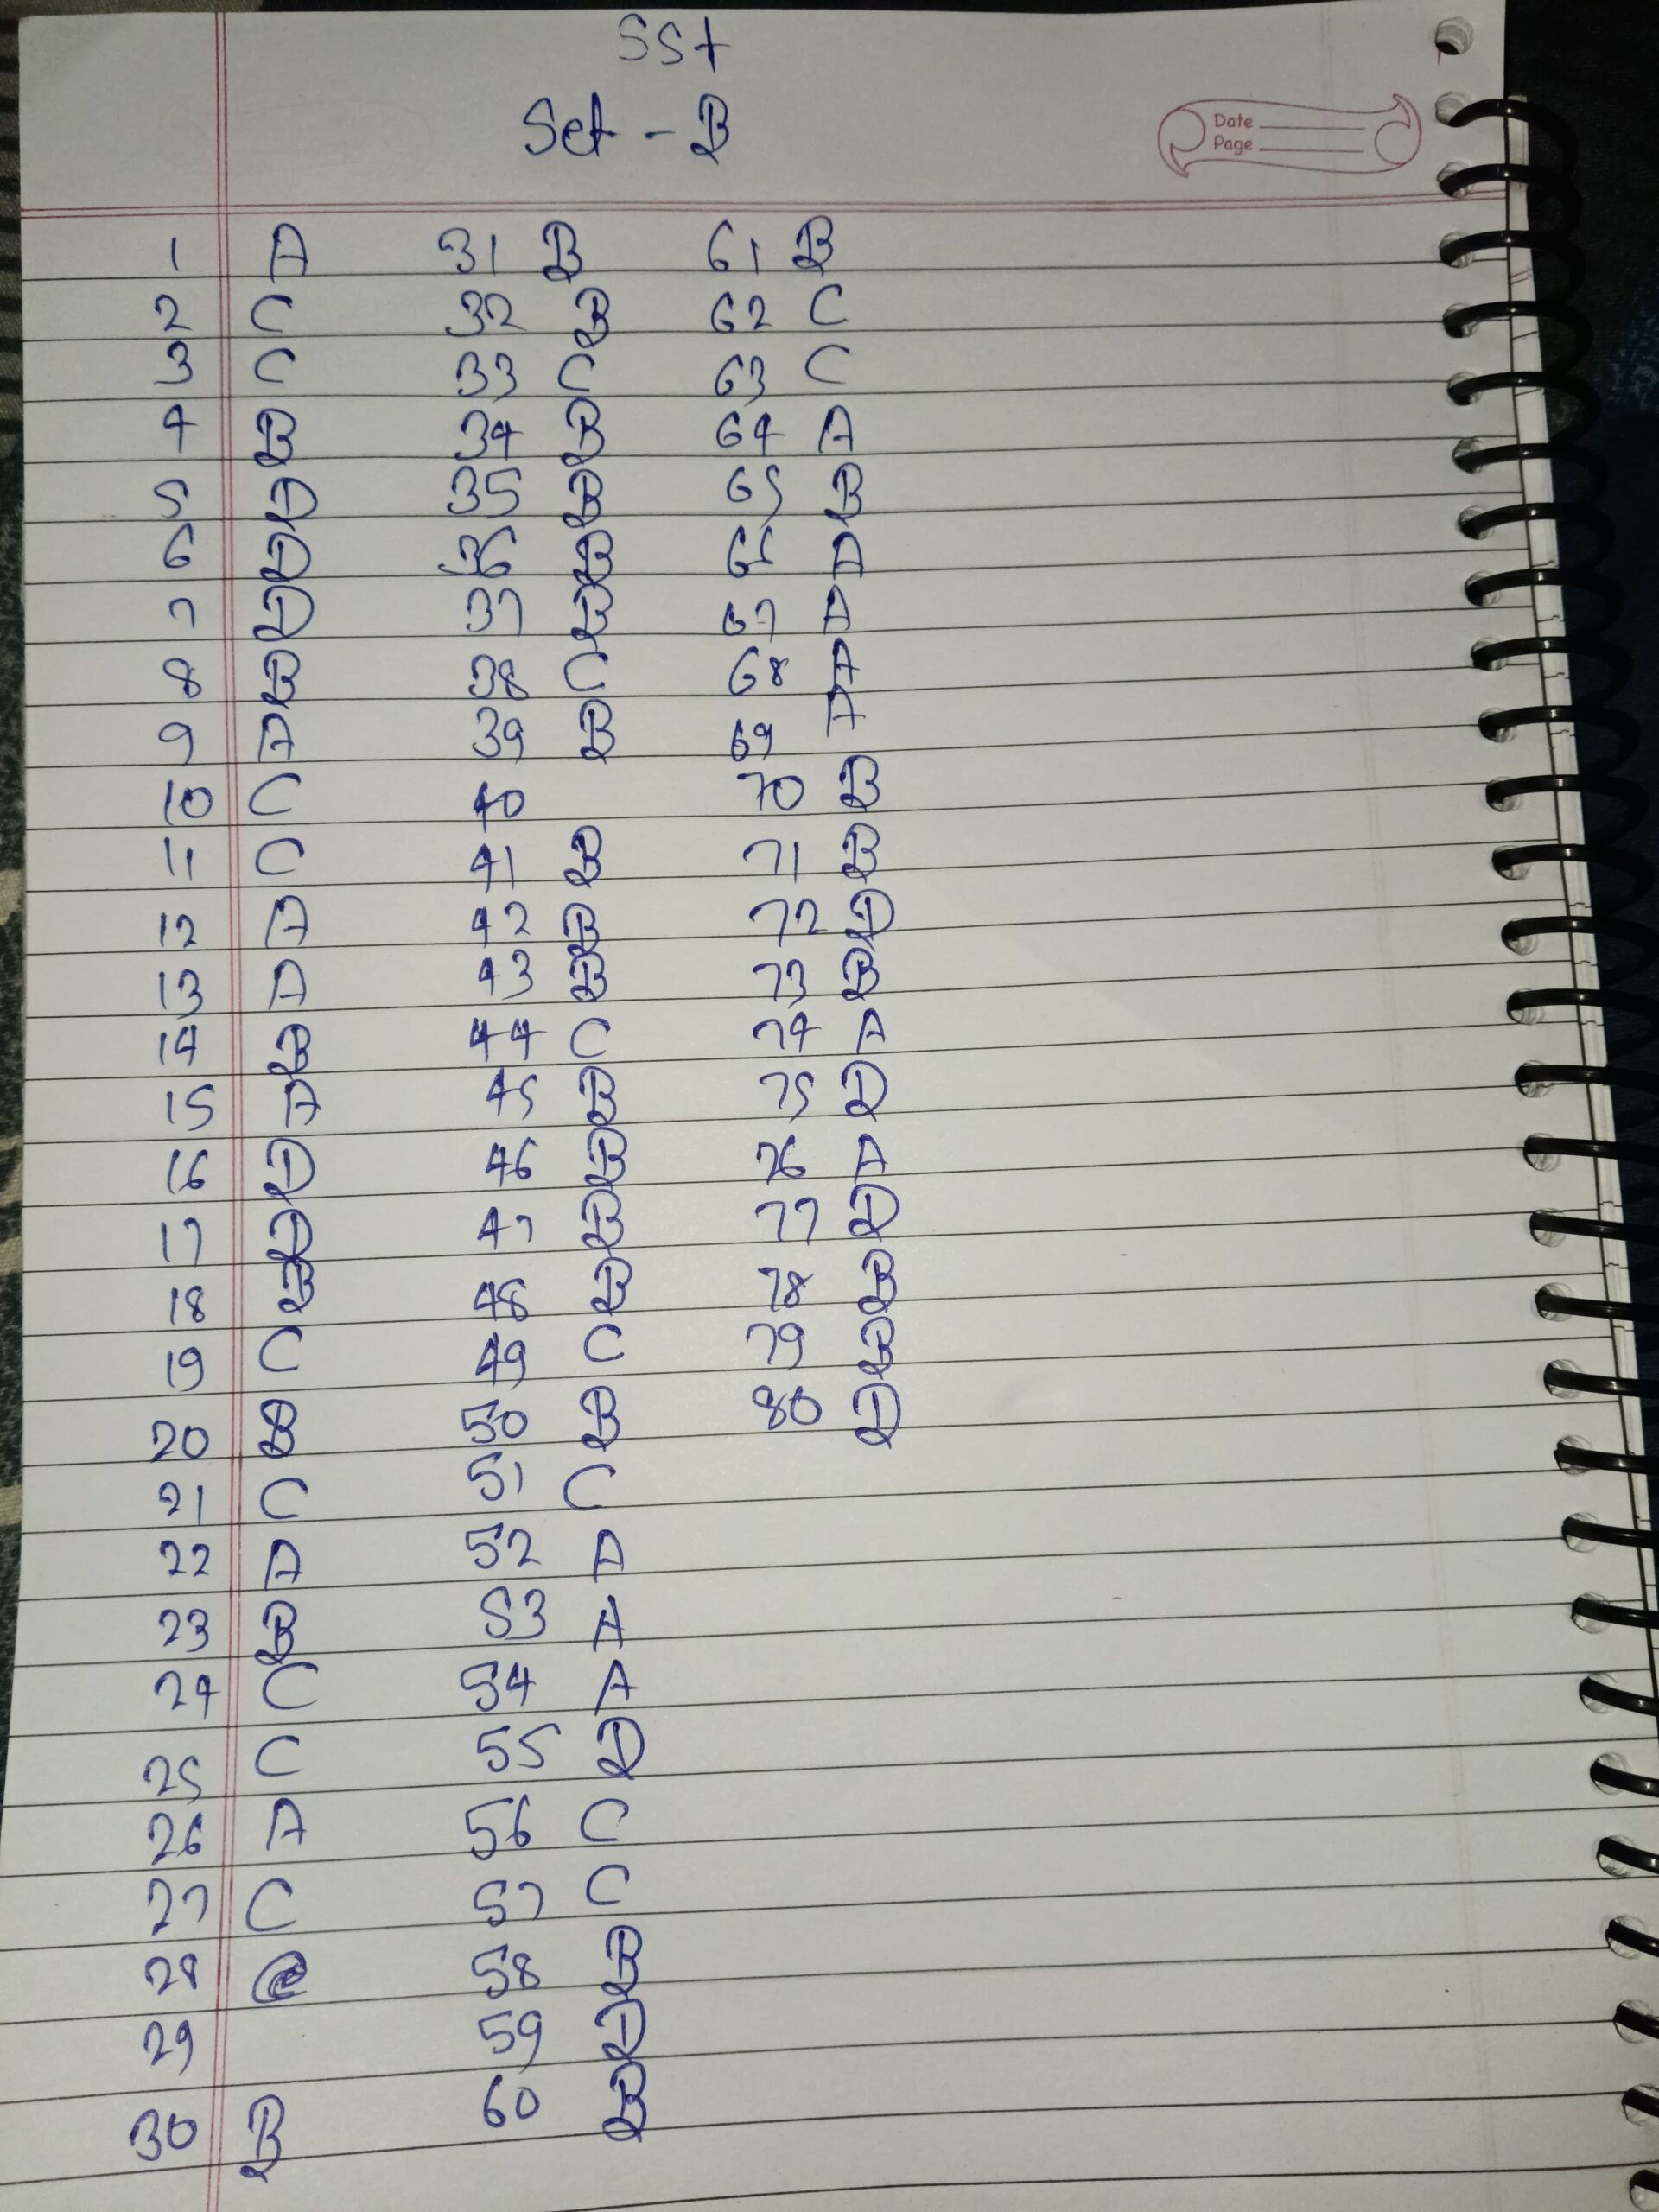 SSt
Set - B
Date
Page
1 A 31 B 61 B
2 C 32 B 62 C
3 C 33 C 63 C
4 B 34 B 64 A
5 D 35 B 65 B
6 D 36 B 66 A
7 D 37 B 67 A
8 B 38 C 68 A
9 A 39 B 69 A
10 C 40 70 B
11 C 41 B 71 B
12 A 42 B 72 D
13 A 43 B 73 B
14 B 44 C 74 A
15 A 45 B 75 D
16 D 46 B 76 A
17 D 47 B 77 D
18 B 48 B 78 B
19 C 49 C 79 B
20 B 50 B 80 D
21 C 51 C
22 A 52 A
23 B 53 A
24 C 54 A
25 C 55 D
26 A 56 C
27 C 57 C
28 58 B
29 59 D
30 B 60 B